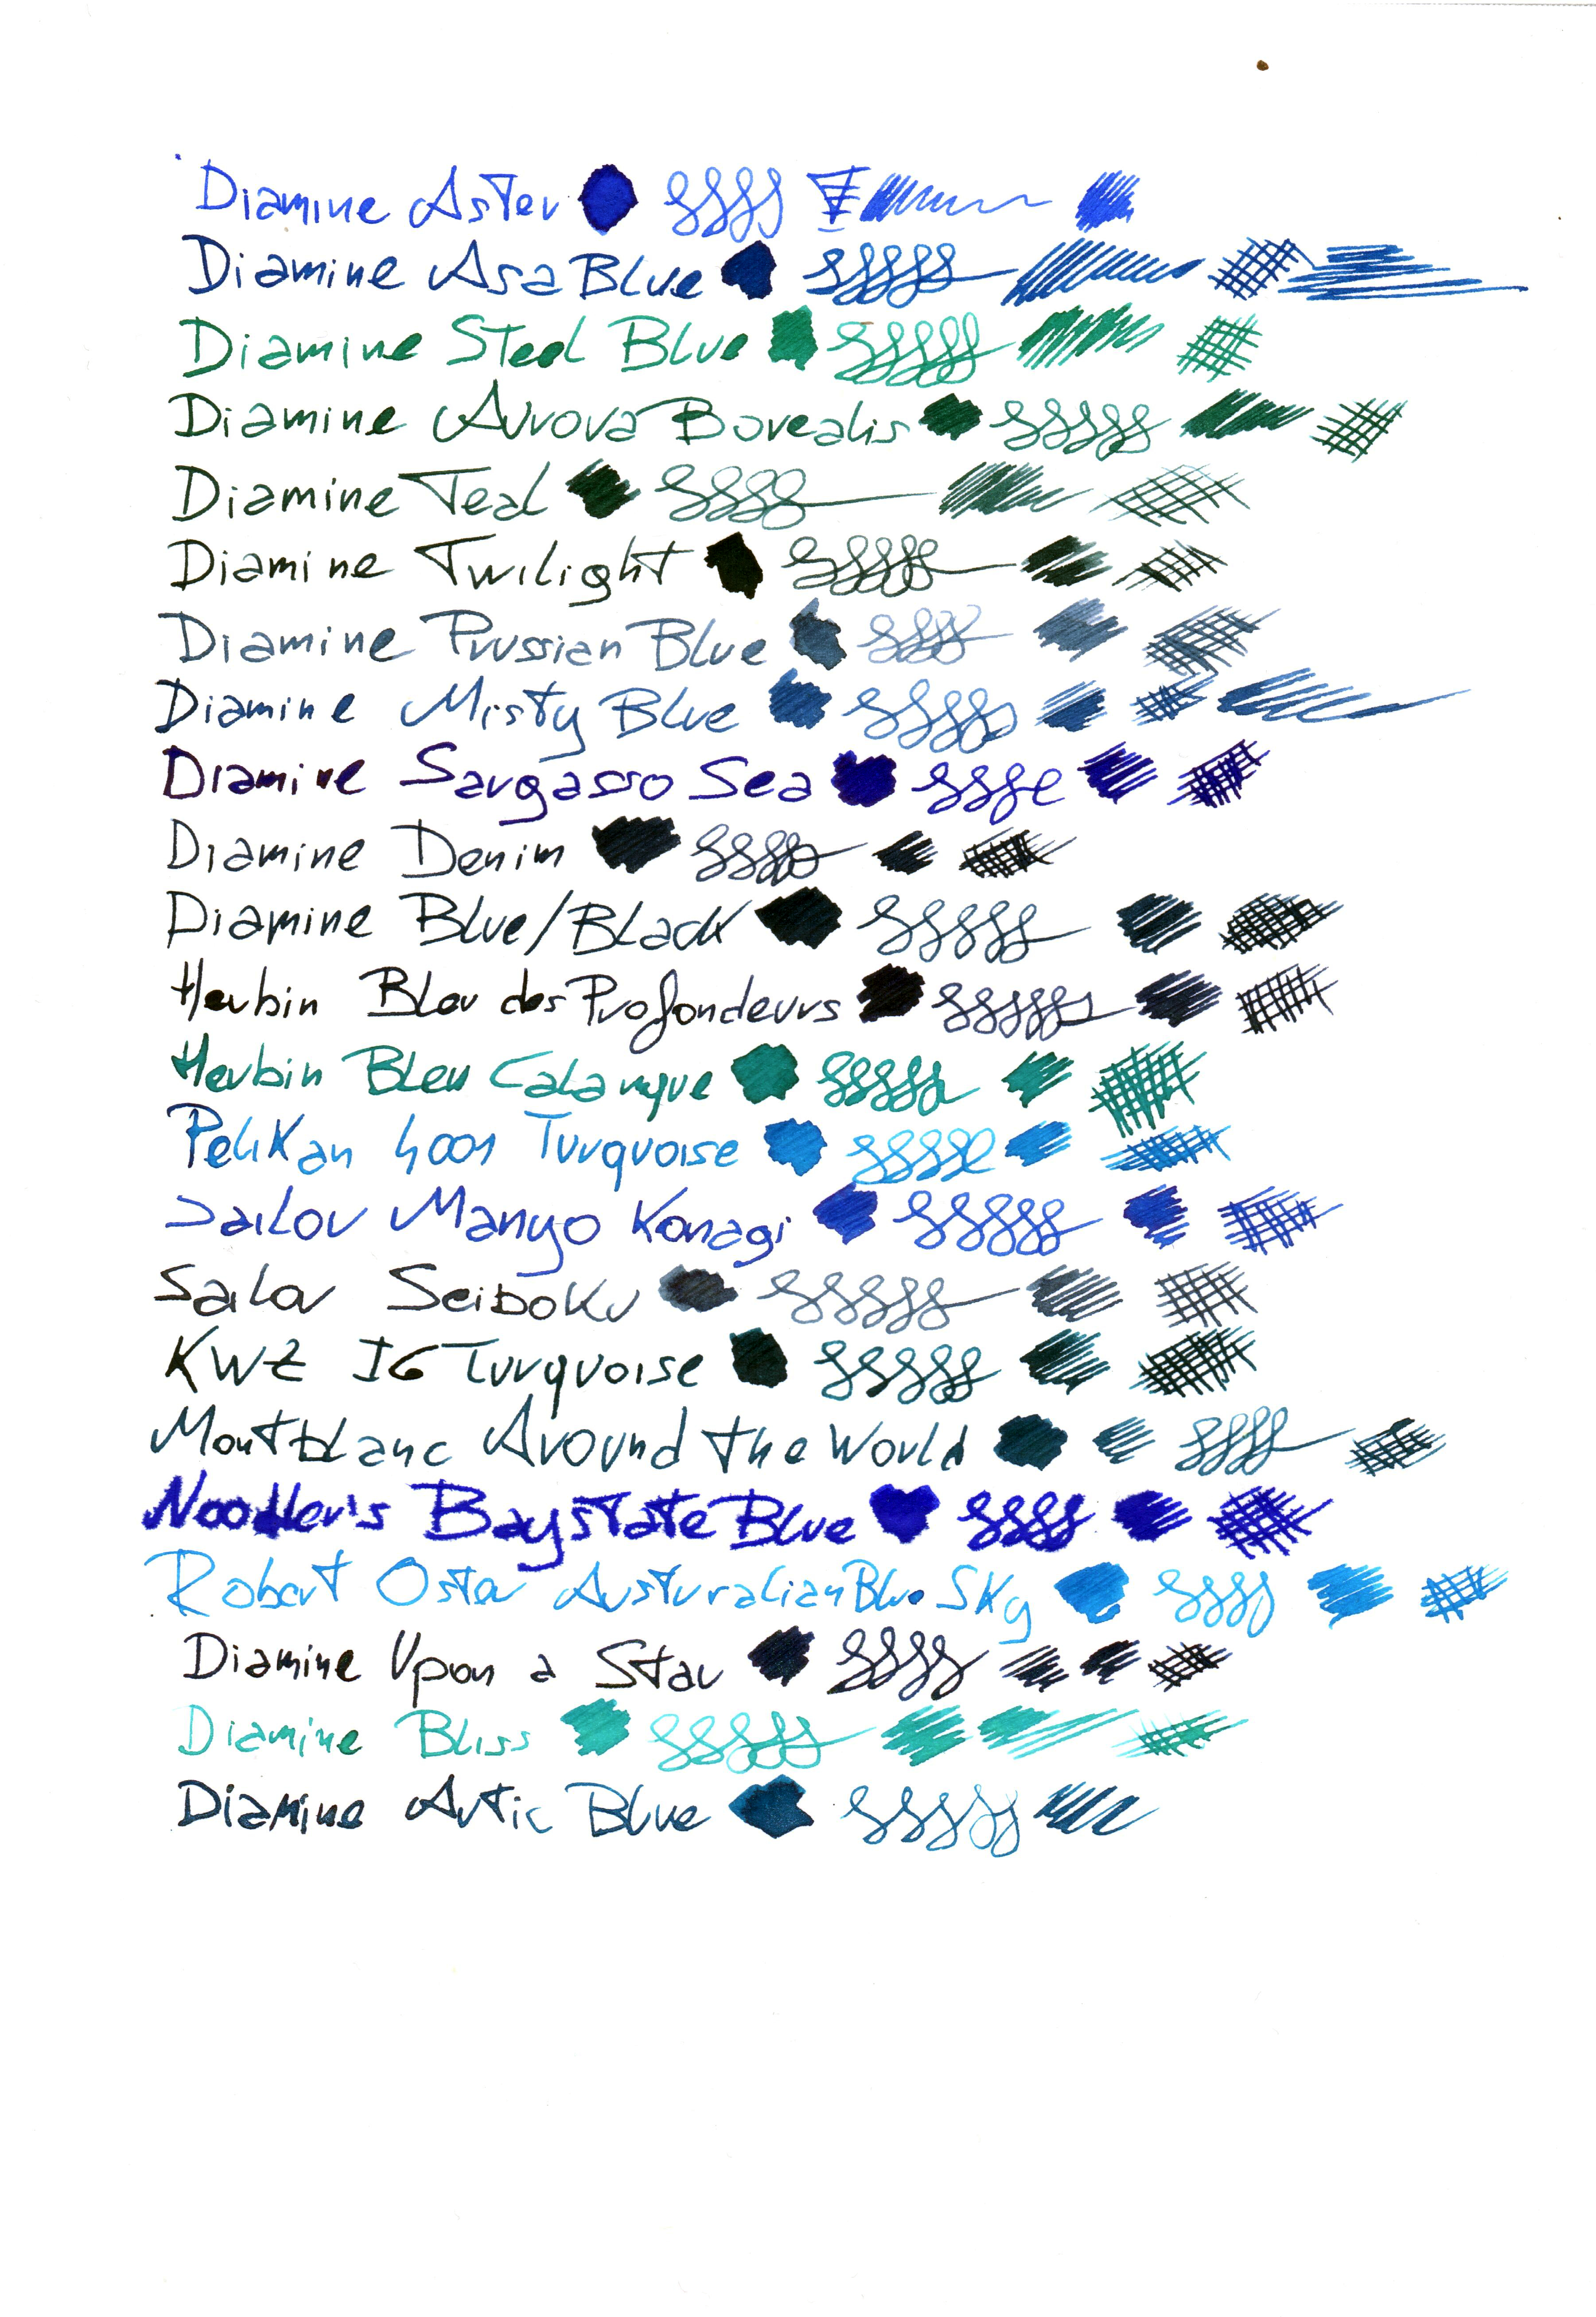 Diamine Aster
Diamine Asa Blue
Diamine Steel Blue
Diamine Aurora Borealis
Diamine Teal
Diamine Twilight
Diamine Prussian Blue
Diamine Misty Blue
Diamine Sargasso Sea
Diamine Denim
Diamine Blue/Black
Herbin Bleu des Profondeurs
Herbin Bleu Calanque
Pelikan 4001 Turquoise
Sailor Manyo Konagi
Sailor Seiboku
KWZ IG Turquoise
Montblanc Around the World
Noodler's Baystate Blue
Robert Oster Austuralian Blue Sky
Diamine Upon a Star
Diamine Bliss
Diamine Artic Blue